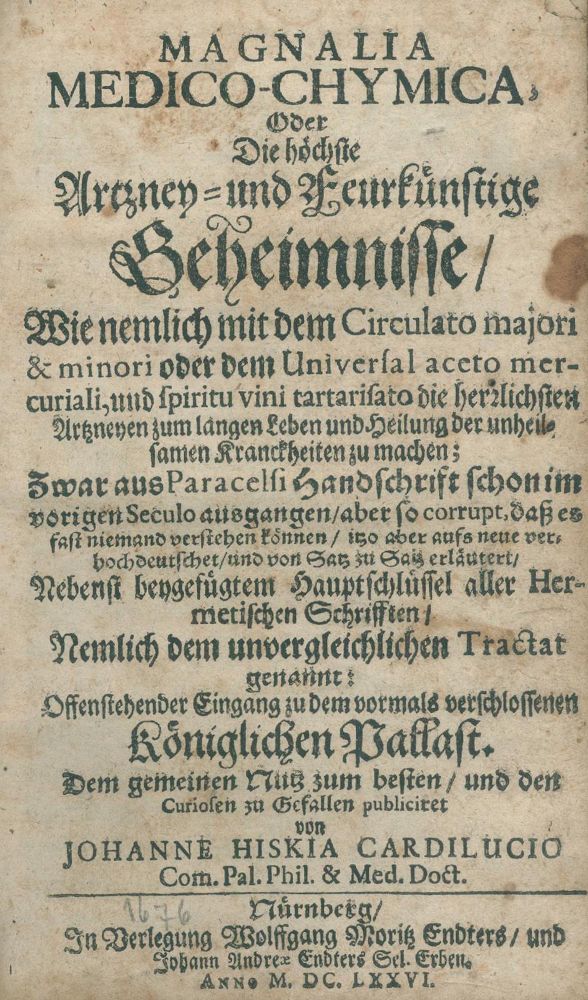 MAGNALIA
MEDICO-CHYMICA,
Oder
Die höchste
Artzney=und Feurkünstige
Geheimnisse/
Wie nemlich mit dem Circulato majori
& minori oder dem Universal aceto mer-
curiali, und spiritu vini tartarisato die herꝛlichsten
Artzneyen zum langen Leben und Heilung der unheil-
samen Kranckheiten zu machen;
Zwar aus Paracelsi Handschrift schon im
vorigen Seculo ausgangen/aber so corrupt, daß es
fast niemand verstehen können/ itzo aber aufs neue ver-
hochdeutschet/und von Satz zu Satz erläutert/
Nebenst beygefügtem Hauptschlüssel aller Her-
metischen Schrifften/
Nemlich dem unvergleichlichen Tractat
genannt:
Offenstehender Eingang zu dem vormals verschlossenen
Königlichen Pallast.
Dem gemeinen Nutz zum besten/ und den
Curiosen zu Gefallen publiciret
von
JOHANNE HISKIA CARDILUCIO
Com. Pal. Phil. & Med. Doct.
1676
Nürnberg/
In Verlegung Wolffgang Moritz Endters/ und
Johann Andreæ Endters Sel. Erben.
ANNO M. DC. LXXVI.